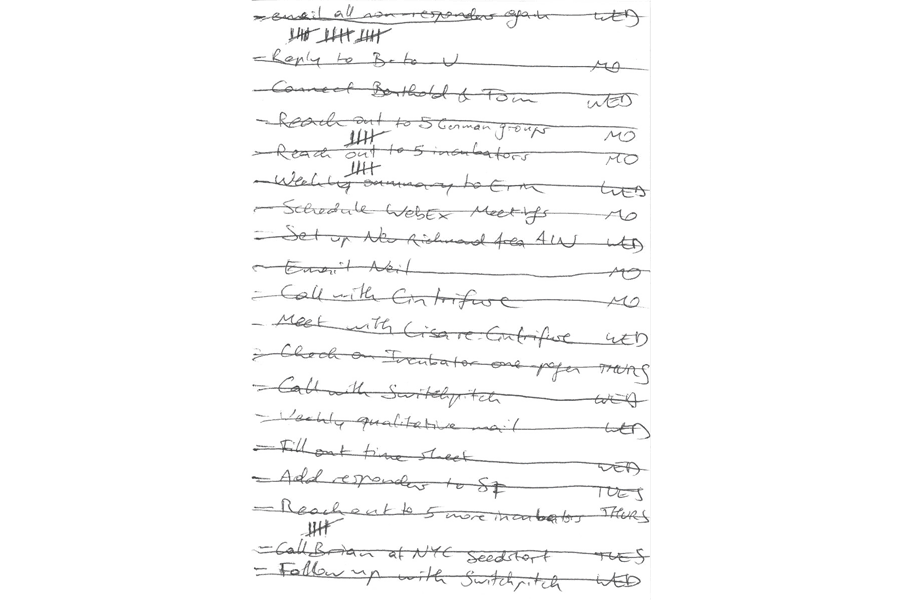 - email all non-responders again WED
- Reply to Beta U MO
- Connect Berthold & Tom WED
- Reach out to 5 German groups MO
- Reach out to 5 incubators MO
- Weekly summary to Erm WED
- Schedule WebEx Meetings MO
- Set up New Richmond Area 4W WED
- Email Neil MO
- Call with Cintrifuse MO
- Meet with Lisa re: Cintrifuse WED
- Check on Incubator one-pager THURS
- Call with Switchpitch WED
- Weekly qualitative mail WED
- Fill out time sheet WED
- Add responders to SF TUES
- Reach out to 5 more incubators THURS
- Call Brian at NYC Seedstart TUES
- Follow up with Switchpitch WED